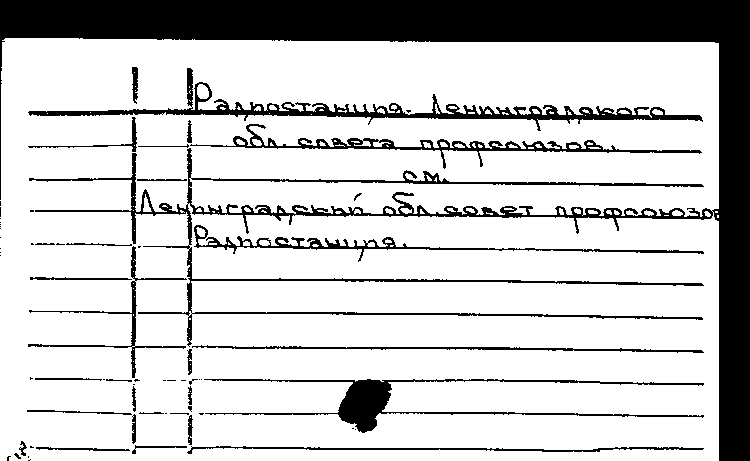 Радиостанция Ленинградского
обл. совета профсоюзов.
см.
Ленинградский обл. совет профсоюзов
Радиостанция.